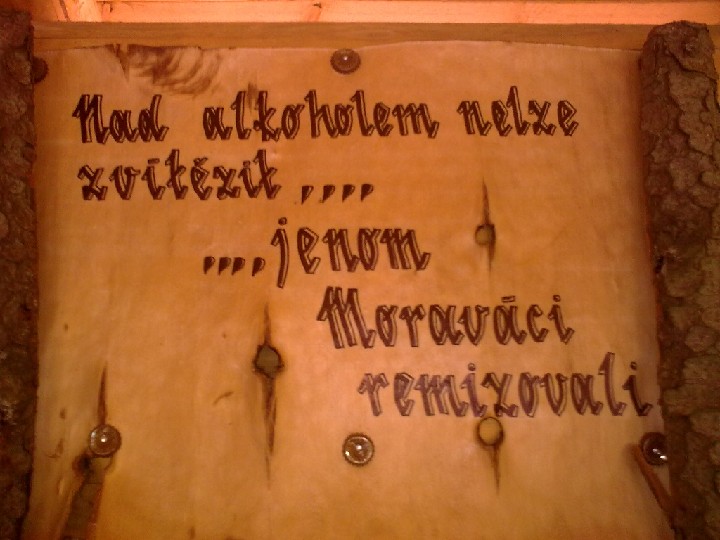 Nad alkoholem nelze
zvítězit ,,,,
,,,,jenom
Moraváci
remizovali